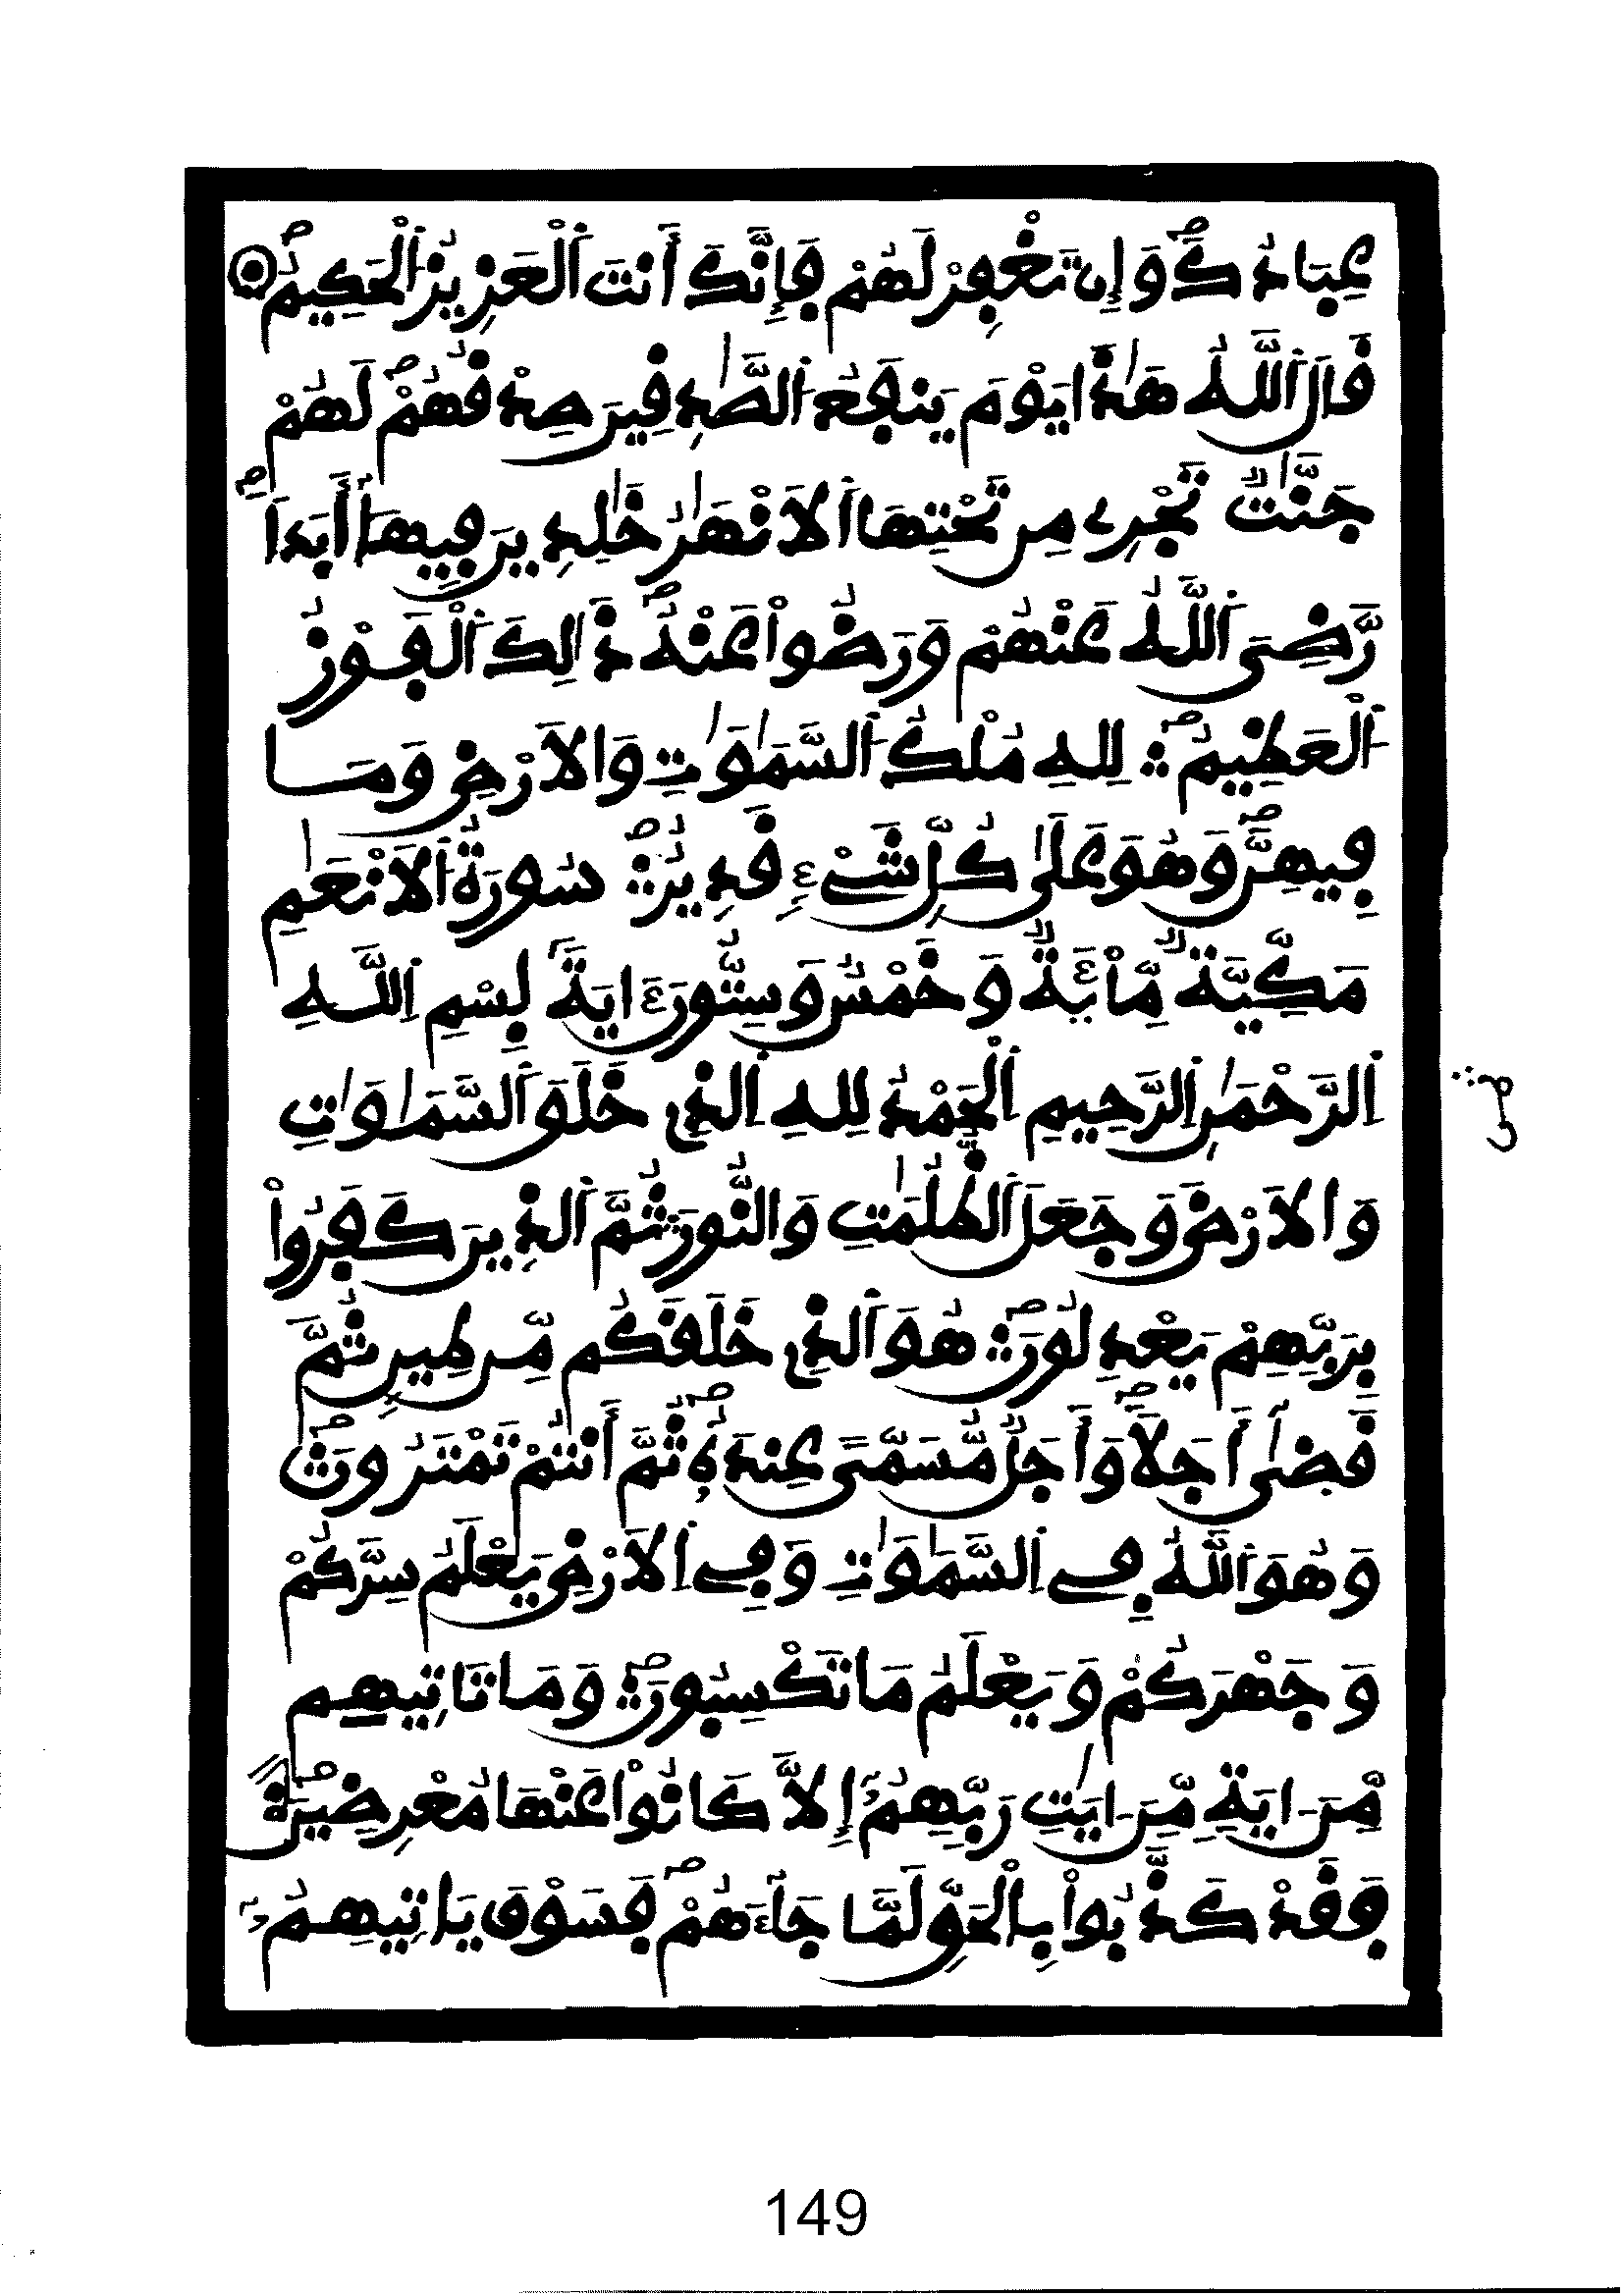 عِبَادُكَ وَإِن تَغْفِرْ لَهُمْ فَإِنَّكَ أَنتَ اَلْعَزِيزُ اَلْحَكِيمُ
قَالَ اَللَّهُ هَٰذَا يَوْمَ يَنفَعُ اُلصَّٰدِقِينَ صِدْقُهُمْ لَهُمْ
جَنَّٰتٌ تَجْرِے مِن تَحْتِهَا اَلَانْهَٰرُ خَٰلِدِينَ فِيهَا أَبَداٗ
رَّضِيَ اَللَّهُ عَنْهُمْ وَرَضُواْ عَنْهُ ذَٰلِكَ اَلْفَوْزُ
اُلْعَظِيمُ لِلهِ مُلْكُ اُلسَّمَٰوَٰتِ وَالَارْضِ وَمَا
فِيهِنَّ وَهُوَ عَلَىٰ كُلِّ شَےْءٖ قَدِيرٌ سُورَةُ اَلَانْعَٰمِ
مَكِّيَّةٌ مِّاْئَةٌ وَخَمْسٌ وَسِتُّونَ ءَايَةً بِسْمِ اِللَّهِ
اِلرَّحْمَٰنِ اِلرَّحِيمِ اِلْحَمْدُ لِلهِ اِلذِے خَلَقَ اَلسَّمَٰوَٰتِ
وَالَارْضَ وَجَعَلَ اَلظُّلُمَٰتِ وَالنُّورَ ثُمَّ اَلذِينَ كَفَرُواْ
بِرَبِّهِمْ يَعْدِلُونَ هُوَ اَلذِے خَلَقَكُم مِّن طِينٖ ثُمَّ
قَضَىٰ أَجَلًا وَأَجَلٌ مُّسَمًّى عِندَهُ ثُمَّ أَنتُمْ تَمْتَرُونَ
وَهُوَ اَللَّهُ فِے اِلسَّمَٰوَٰتِ وَفِے اِلَارْضِ يَعْلَمُ سِرَّكُمْ
وَجَهْرَكُمْ وَيَعْلَمُ مَا تَكْسِبُونَ وَمَا تَاتِيهِم
مِّنَ ايَةٖ مِّنَ ايَٰتِ رَبِّهِمُۥ إِلَّا كَانُواْ عَنْهَا مُعْرِضِينَ
فَقَدْ كَذَّبُواْ بِالْحَقِّ لَمَّا جَآءَهُمْ فَسَوْفَ يَاتِيهِمُۥ
149